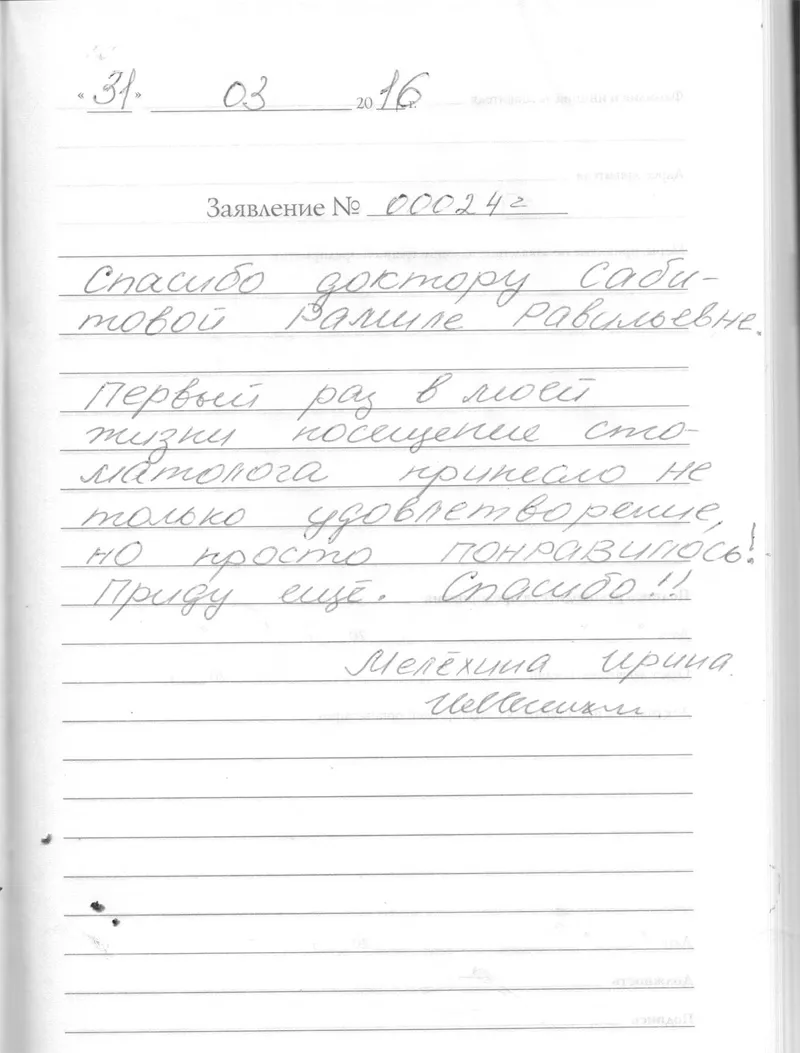 «31» 03 2016 г.
Заявление № 00024г
Спасибо доктору Саби-
товой Рамиле Равильевне.
Первый раз в моей
жизни посещение сто-
матолога принесло не
только удовлетворение,
но просто понравилось!
Приду ещё. Спасибо!!
Мелёхина Ирина